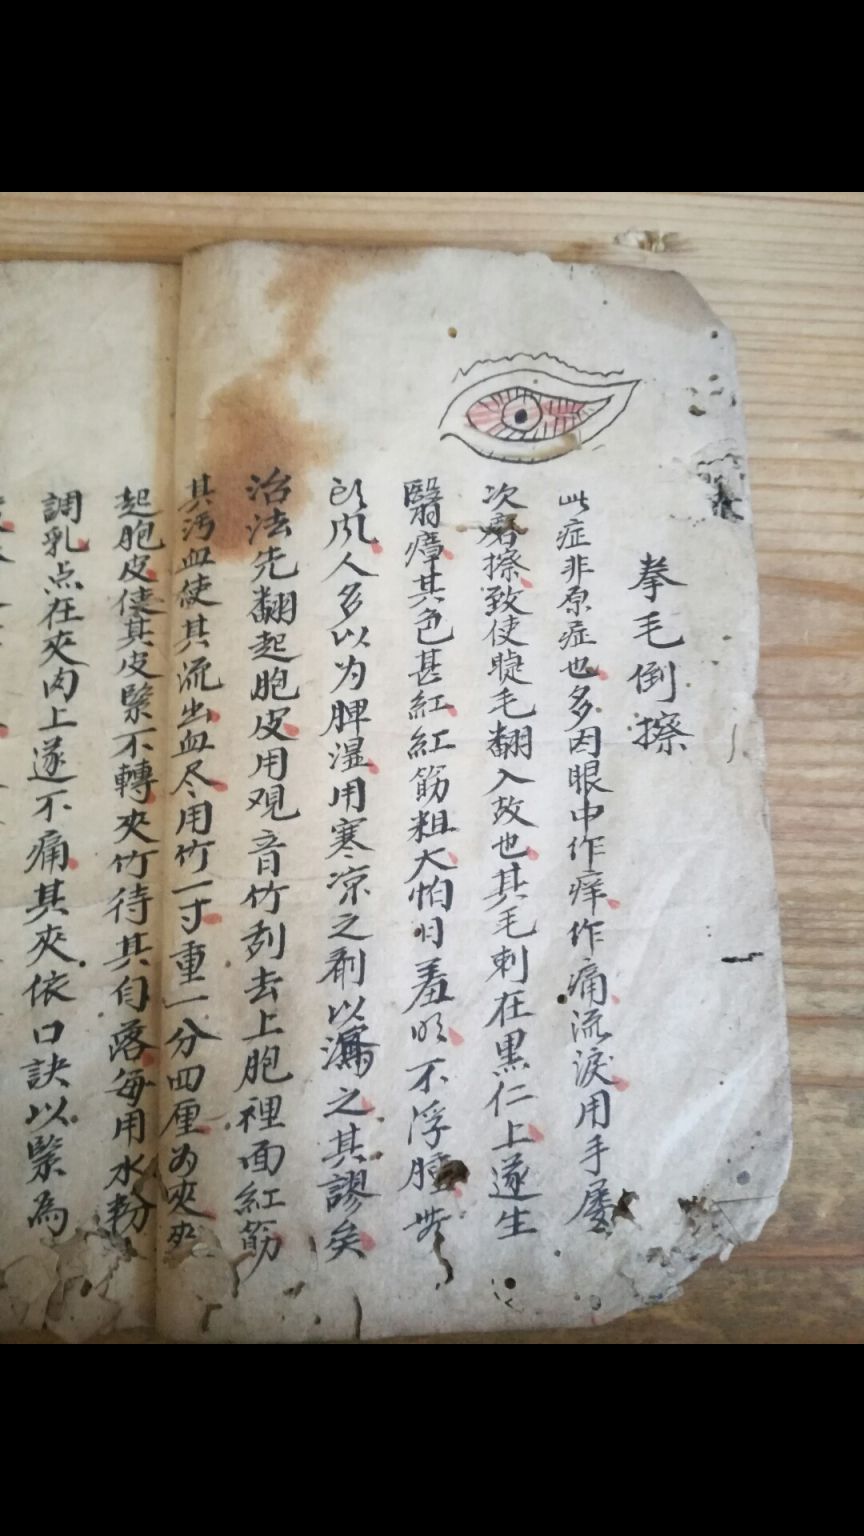 拳毛倒擦
此症非原症也多因眼中作痒作痛流淚用手屡
次磨擦致使睫毛翻入故也其毛刺在黒仁上遂生
翳瘴其色甚紅紅筋粗大怕日羞明不浮腫
風人多以为脾湿用寒凉之剤以瀉之其謬矣
治法先翻起胞皮用观音竹刮去上胞裡面紅筋
其污血使其流出血尽用竹一寸重一分四厘为夾夾
起胞皮使其皮緊不轉夾竹待其自落每用水粉
調乳点在夾肉上遂不痛其夾依口訣以緊為